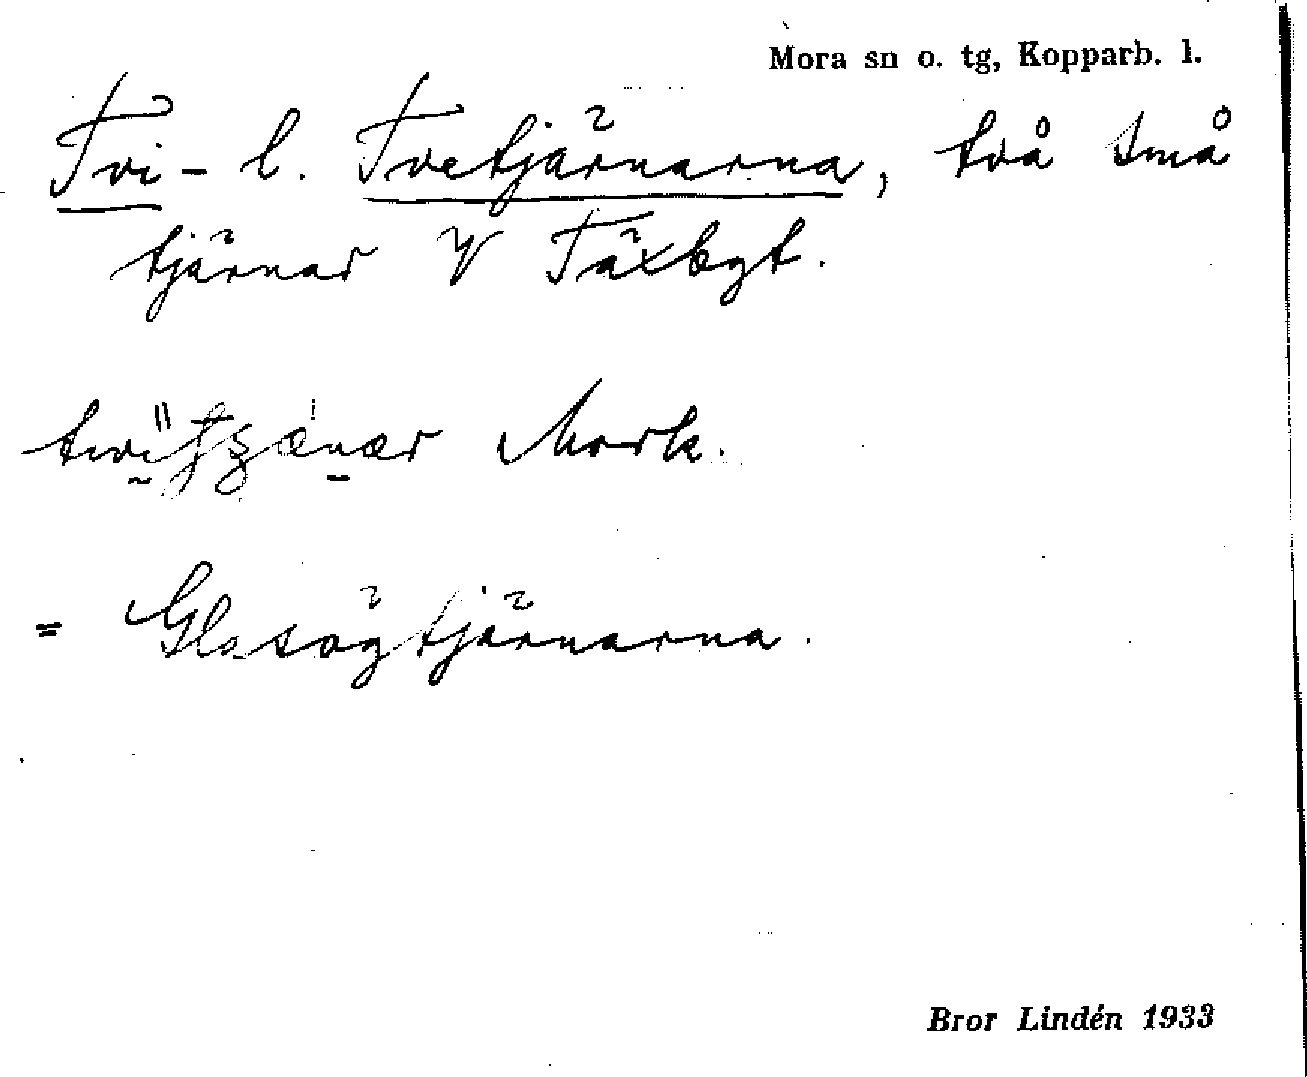 Mora sn o. tg, Kopparb. l.
Tvi- l. Tvetjärnarna, två små
tjärnar V Täxbgt.
Mork.
= Glasögtjärnarna.
Bror Lindén 1933